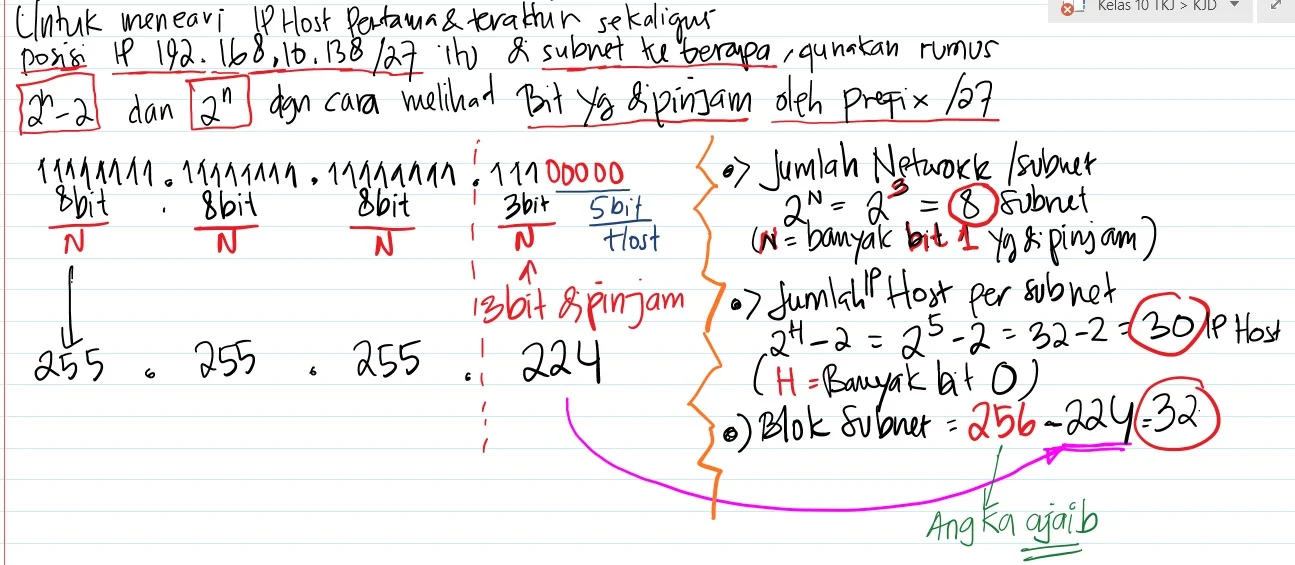 Kelas 10 TKJ > KJD
Untuk mencari IP Host Pertama & terakhir sekaligus
posisi IP 192.168.10.138/27 itu di subnet ke berapa, gunakan rumus
2ⁿ-2 dan 2ⁿ dgn cara melihad Bit yg dipinjam oleh prefix /27
11111111.11111111.11111111.11100000
8bit . 8bit 8bit 3bit 5bit
N N N N Host
3bit dipinjam
255 . 255 . 255 . 224
•> Jumlah Network /subnet
2ᴺ = 2³ = 8 Subnet
(N = banyak bit 1 yg dipinjam)
•> Jumlah IP Host per subnet
2ᴴ-2 = 2⁵-2 = 32-2 = 30 IP Host
(H = Banyak bit 0)
•) Blok Subnet = 256 - 224 = 32
Angka ajaib